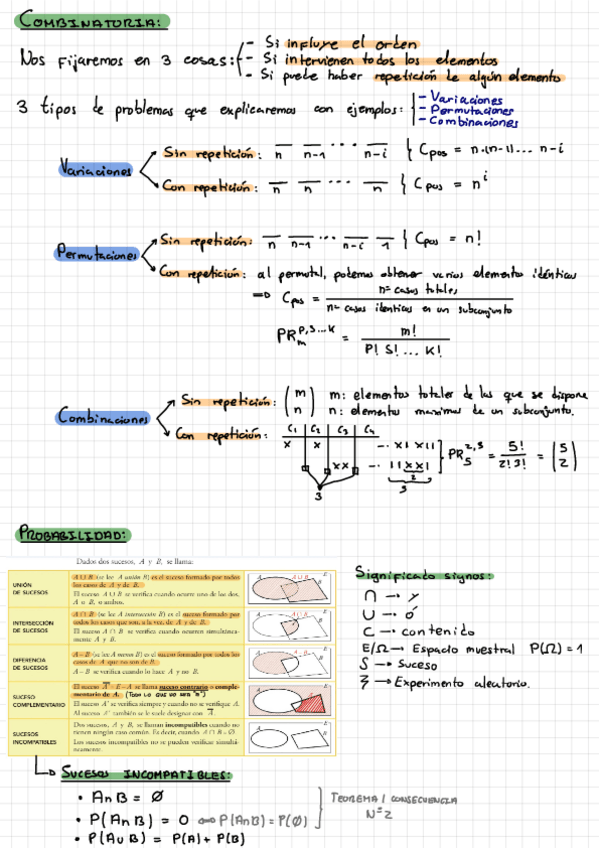 COMBINATORIA:
Nos fijaremos en 3 cosas: - Si influye el orden
- Si intervienen todos los elementos
- Si puede haber repetición de algún elemento
3 tipos de problemas que explicaremos con ejemplos: - Variaciones
- Permutaciones
- Combinaciones
Variaciones
Sin repetición: n n-1 ... n-i } Cpos = n·(n-1)... n-i
Con repetición: n n ... n } Cpos = n^i
Permutaciones
Sin repetición: n n-1 ... n-i 1 } Cpos = n!
Con repetición: al permutal, podemos obtener varios elementos idénticos
=> Cpos = nº casos totales / nº casos idénticos en un subconjunto
PR_m^{P,S...K} = m! / P! S! ... K!
Combinaciones
Sin repetición: (m n) m: elementos totales de los que se dispone
n: elementos maximos de un subconjunto.
Con repetición: C1 C2 C3 C4
x x → x1 x11
xx → 11xx1
2
3
3
PR_5^{2,3} = 5! / 2! 3! = (5 2)
PROBABILIDAD:
Dados dos sucesos, A y B, se llama:
UNIÓN DE SUCESOS
A∪B (se lee A unión B) es el suceso formado por todos los casos de A y de B.
El suceso A∪B se verifica cuando ocurre uno de los dos, A o B, o ambos.
INTERSECCIÓN DE SUCESOS
A∩B (se lee A intersección B) es el suceso formado por todos los casos que son, a la vez, de A y de B.
El suceso A∩B se verifica cuando ocurren simultáneamente A y B.
DIFERENCIA DE SUCESOS
A – B (se lee A menos B) es el suceso formado por todos los casos de A que no son de B.
A – B se verifica cuando lo hace A y no B.
SUCESO COMPLEMENTARIO
El suceso A' = E – A se llama suceso contrario o complementario de A. (TODO LO QUE NO SEA "A")
El suceso A' se verifica siempre y cuando no se verifique A.
Al suceso A' también se le suele designar con A̅.
SUCESOS INCOMPATIBLES
Dos sucesos, A y B, se llaman incompatibles cuando no tienen ningún caso común. Es decir, cuando A∩B = Ø
Los sucesos incompatibles no se pueden verificar simultáneamente.
Significado signos:
∩ → y
∪ → ó
⊂ → contenido
E/Ω → Espacio muestral P(Ω) = 1
S → Suceso
→ Experimento aleatorio.
SUCESOS INCOMPATIBLES:
• A∩B = Ø
• P(A∩B) = 0 ⇔ P(A∩B) = P(Ø)
• P(A∪B) = P(A) + P(B)
TEOREMA / CONSECUENCIA
Nº2